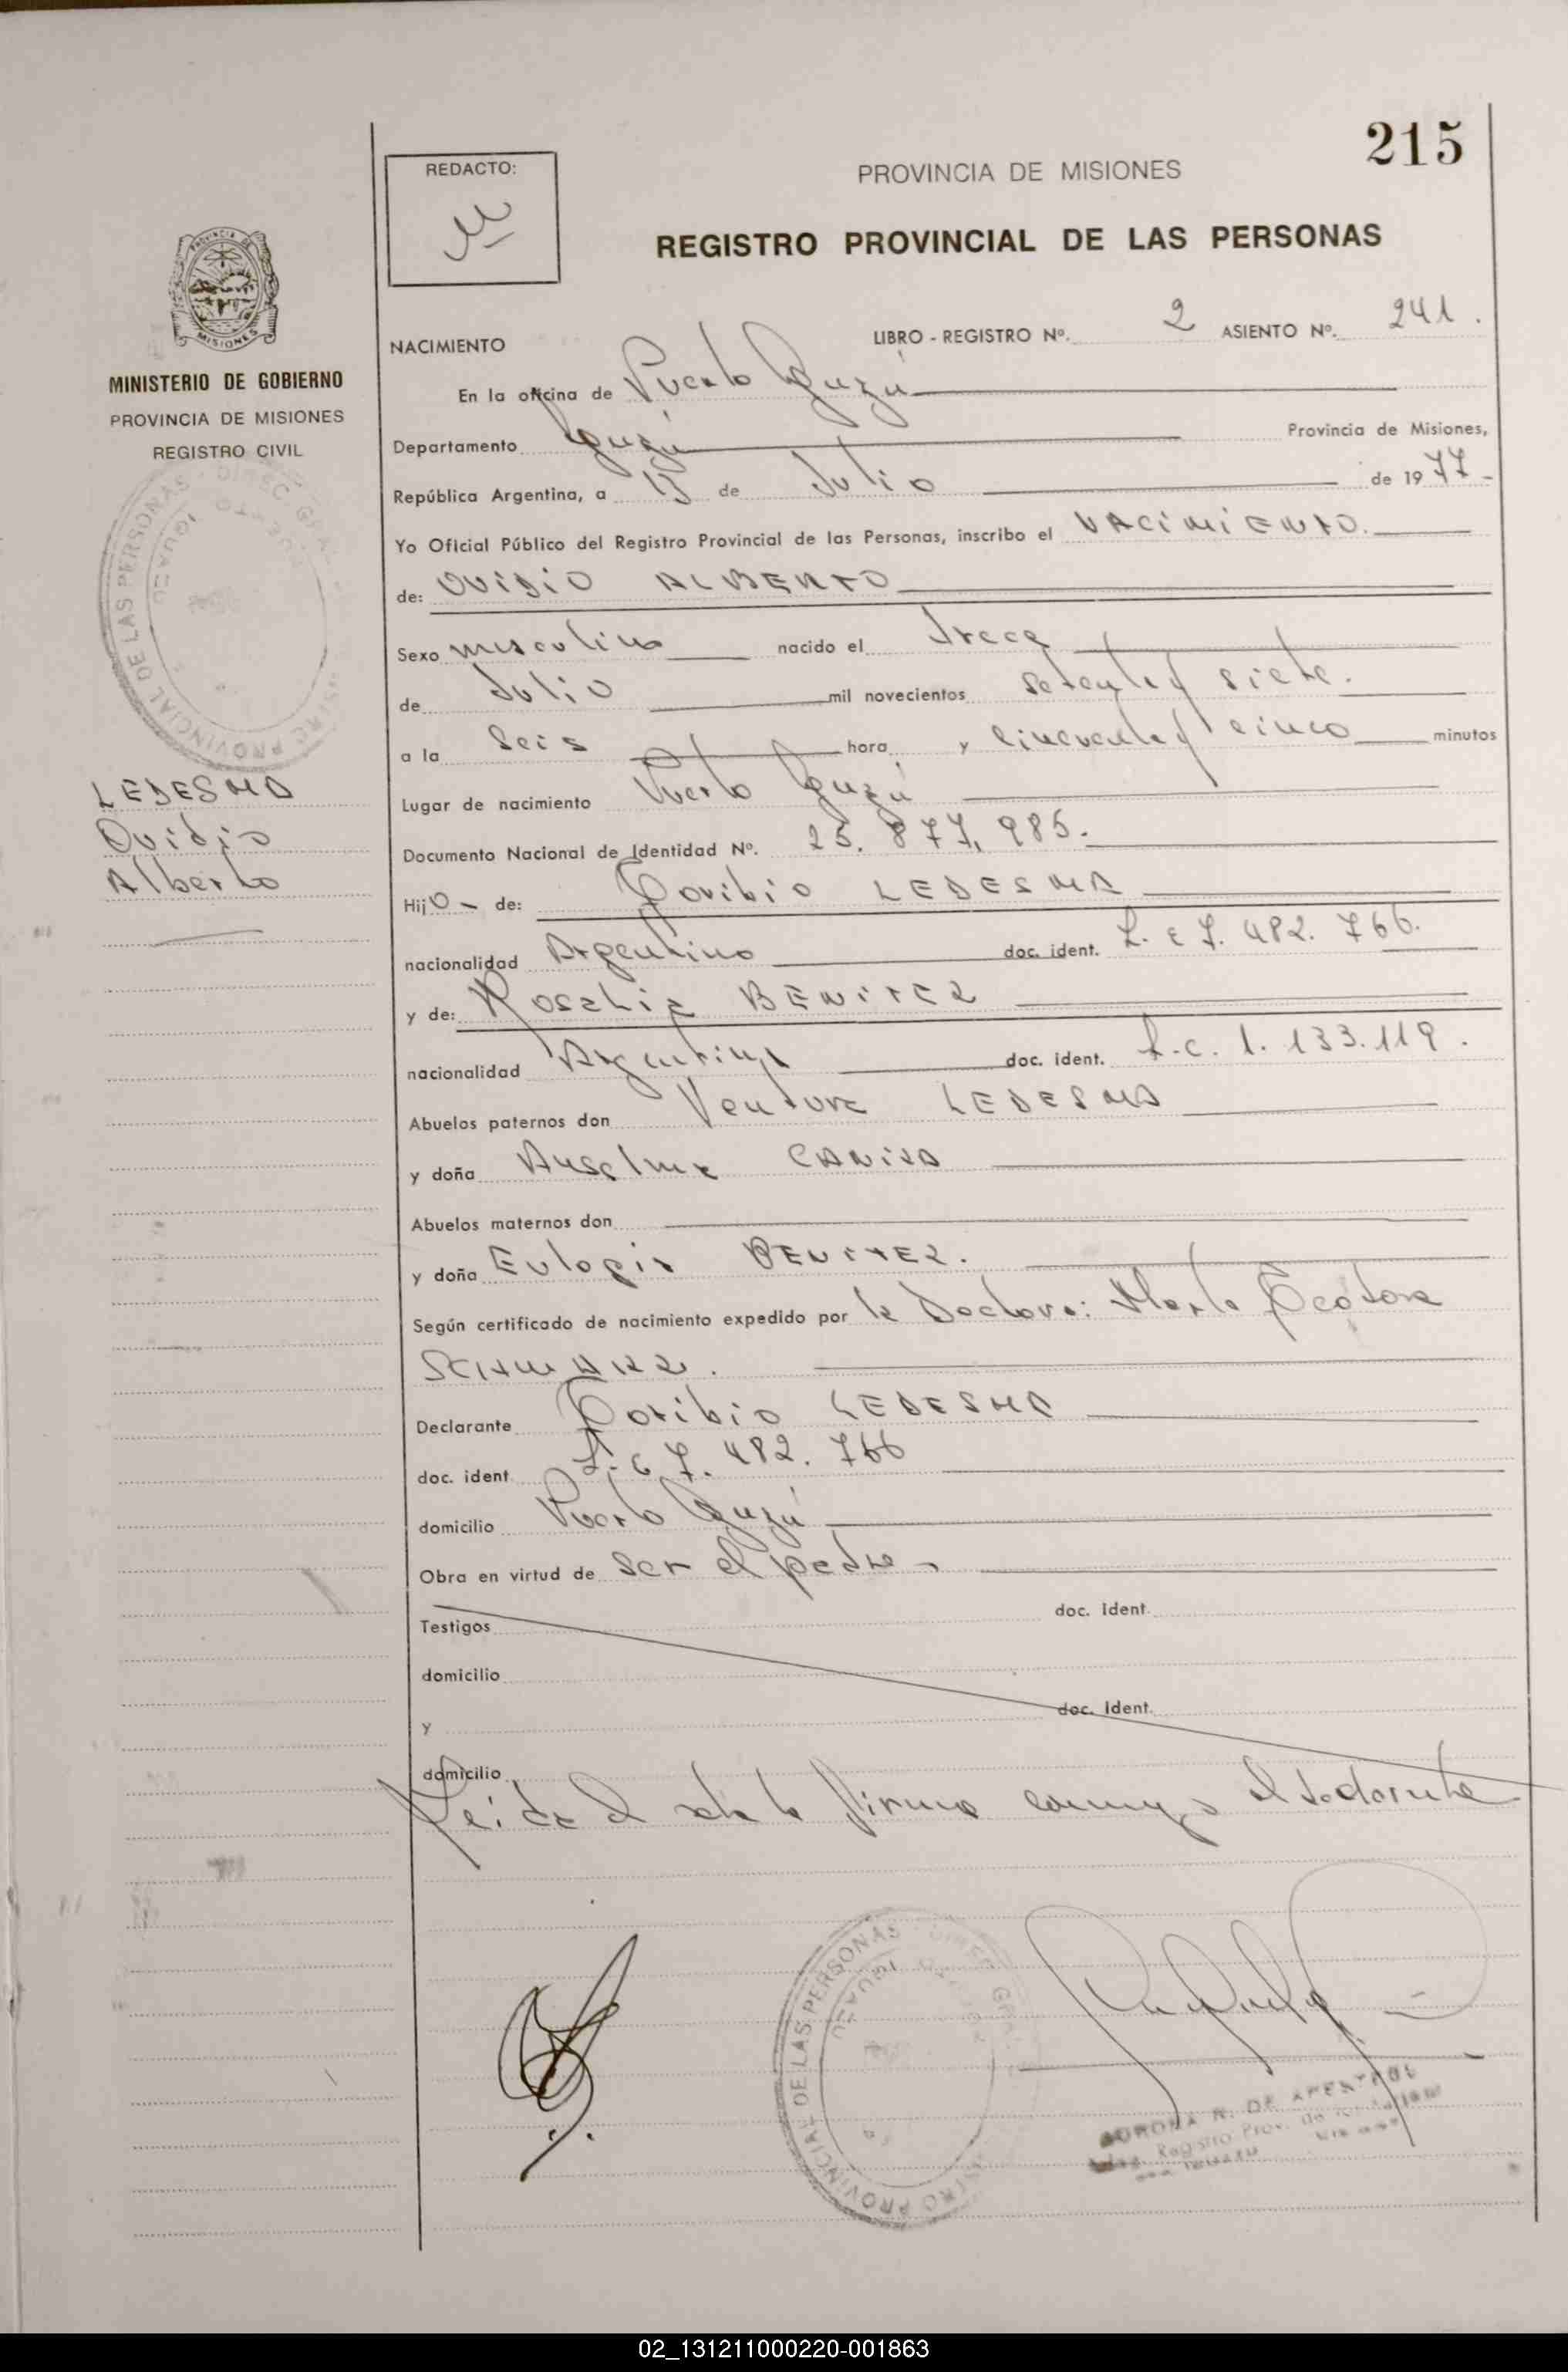 215
REDACTO:
PROVINCIA DE MISIONES
REGISTRO PROVINCIAL DE LAS PERSONAS
PROVINCIA DE
MISIONES
MINISTERIO DE GOBIERNO
PROVINCIA DE MISIONES
REGISTRO CIVIL
LEDESMA
Ovidio
Alberto
NACIMIENTO LIBRO - REGISTRO Nº. 2 ASIENTO Nº. 241.
En la oficina de Puerto Iguazú
Departamento Iguazú Provincia de Misiones,
República Argentina, a 15 de Julio de 1977-
Yo Oficial Público del Registro Provincial de las Personas, inscribo el NACIMIENTO.
de: OVIDIO ALBERTO
Sexo masculino nacido el trece
de Julio mil novecientos setenta y siete.
a la seis hora y cincuenta y cinco minutos
Lugar de nacimiento Puerto Iguazú
Documento Nacional de Identidad Nº. 25.877.985.
Hijo - de: Toribio LEDESMA
nacionalidad Argentino doc. ident. L.E 7.482.766.
y de: Rosalia BENITEZ
nacionalidad Argentina doc. ident. L.C. 1.133.119.
Abuelos paternos don Ventura LEDESMA
y doña Anselma
Abuelos maternos don
y doña Eulogia BENITEZ.
Según certificado de nacimiento expedido por la Doctora: Marta
SCHWARZ.
Declarante Toribio LEDESMA
doc. ident. L.E 7.482.766
domicilio Puerto Iguazú
Obra en virtud de ser el padre
Testigos doc. Ident.
domicilio
y doc. Ident.
domicilio
Leída el acta la firma conmigo el declarante
REGISTRO PROVINCIAL DE LAS PERSONAS
02_131211000220-001863